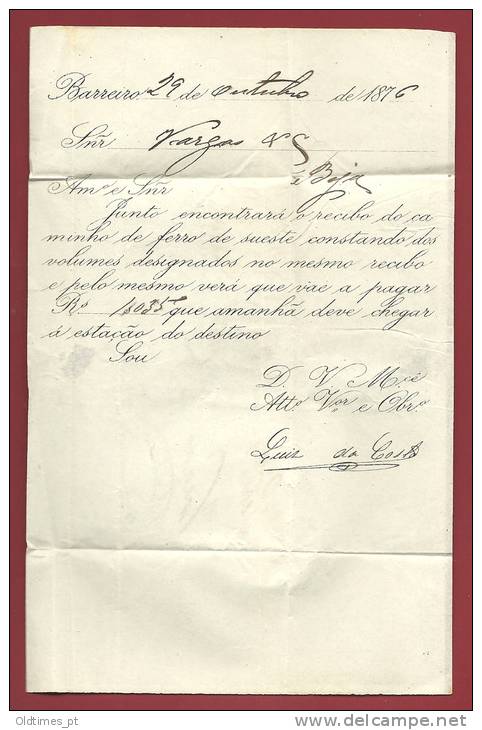 Barreiro 29 de Outubro de 1876
Snr Vargas &
Beja
Amº e Snr
Junto encontrará o recibo do ca
minho de ferro de sueste constando dos
volumes designados no mesmo recibo
e pelo mesmo verá que vae a pagar
Rs 1$035 que amanhã deve chegar
á estação do destino
Sou
D. V. Mcê
Attº Vor e Obrº
Luis da Costa
Oldtimes_pt
delcampe.net